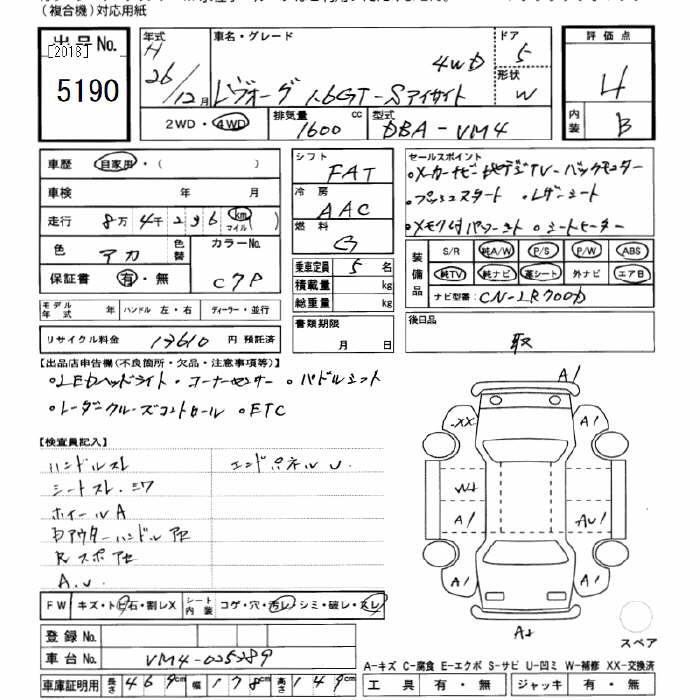 (複合機)対応用紙
出品No.
[2018]
5190
年式
H
26/12月
車名・グレード
4WD
レヴォーグ 1.6GT-Sアイサイト
ドア
5
形状
W
2WD・4WD
排気量
1600 cc
型式
DBA-VM4
評価点
4
内装
B
車歴 自家用・( )
車検 年 月
走行 8万4千236 km マイル( )
色 アカ 色替
カラーNo.
C7P
保証書 有・無
モデル年式 年 ハンドル 左・右 ディーラー・並行
リサイクル料金 円 預託済
シフト
FAT
冷房
AAC
燃料
G
乗車定員 5 名
積載量 kg
総重量 kg
書類期限
月 日
セールスポイント
○メーカーナビ・地デジTV・バックモニター
プッシュスタート ○レザーシート
○メモリ付パワーシート ○シートヒーター
装備品
S/R 純A/W P/S P/W ABS
純TV 純ナビ 革シート 外ナビ エアB
ナビ型番: CN-LR700D
後日品
取
【出品店申告欄(不良箇所・欠品・注意事項等)】
○LEDヘッドライト・コーナーセンサー ○パドルシフト
○レーダークルーズコントロール ○ETC
【検査員記入】
ハンドルスレ エンドパネルU
シートスレ・シワ
ホイールA
Dアウターハンドル
Rスポ
A.U
FW キズ・トビ石・割レX シート内装 コゲ・穴・汚レ・シミ・破レ・スレ
A1
XX
A1
W4
A1
AU1
A1
A1
A2
スペア
登録No.
車台No. VM4-025289
車庫証明用 長さ 469cm 幅 178cm 高さ 149cm
A-キズ C-腐食 E-エクボ S-サビ U-凹ミ W-補修 XX-交換済
工具 有・無 ジャッキ 有・無